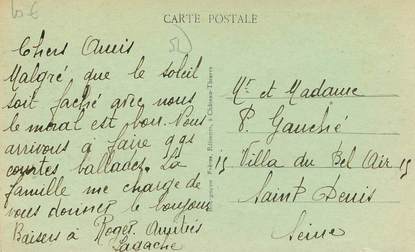 CARTE POSTALE
Chers Amis
Malgré que le soleil
soit faché avec nous
le moral est bon. Nous
arrivons à faire qqs
courtes ballades. La
famille me charge de
vous donner le bonjour
Baisers à Roger. Amitiés
Lagache
Mr et Madame
P. Gauché
15 Villa du Bel Air 15
Saint Denis
Seine